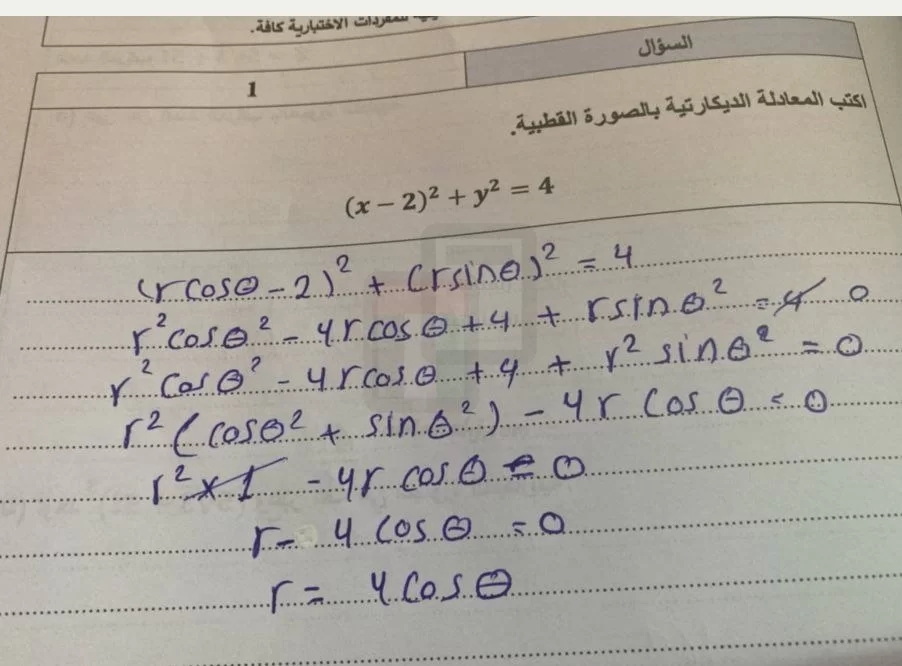 للمفردات الاختبارية كافة.
السؤال
1
اكتب المعادلة الديكارتية بالصورة القطبية.
(x − 2)² + y² = 4
(r cosθ − 2)² + (r sinθ)² = 4
r² cosθ² − 4r cosθ + 4 + r sinθ² = 4 0
r² cosθ² − 4r cosθ + 4 + r² sinθ² = 0
r² (cosθ² + sinθ²) − 4r cosθ = 0
r² × 1 − 4r cosθ = 0
r − 4 cosθ = 0
r = 4 cosθ